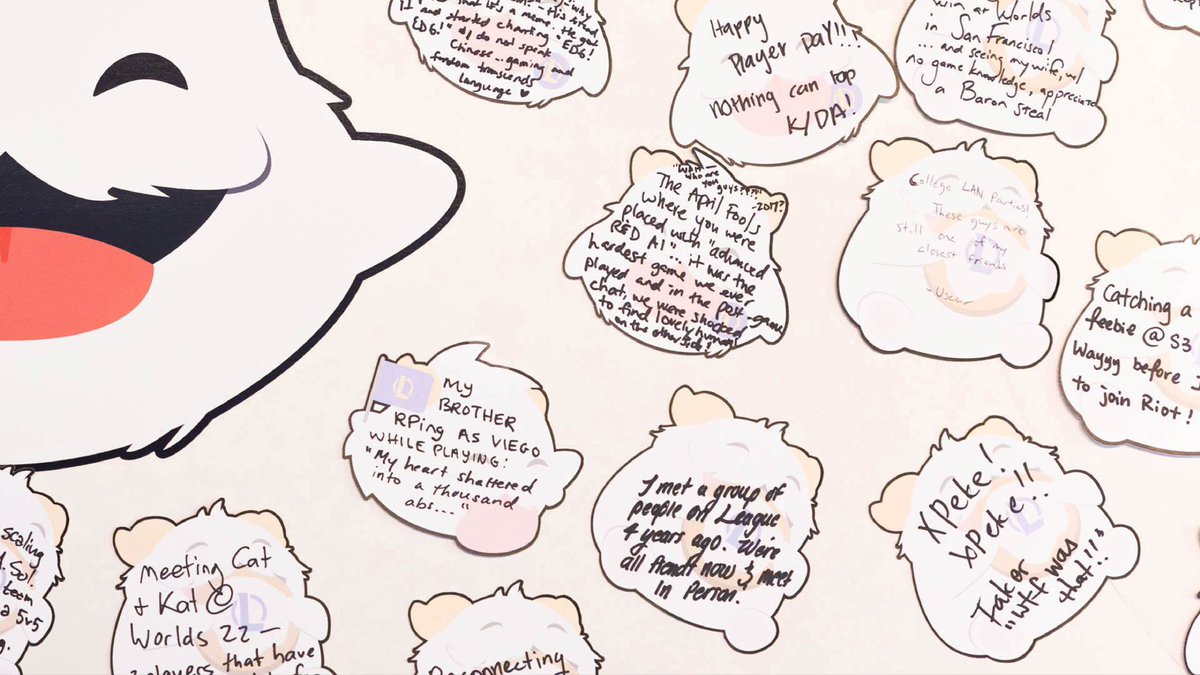 and that it's a meme. He got
and started chanting "EDG!
EDG!" I do not speak
Chinese.. gaming and
fandom transcends
Language ♥
Happy
Player Day!!!
nothing can top
K/DA!
win at Worlds
in San Francisco!
... and seeing my wife, w/
no game knowledge, appreciate
a Baron steal
who are
you guys?!?!"
The April Fools
-2017?
where you were
placed with "advanced
RED AI"... it was the
hardest game we ever
played and in the post game
chat, we were shocked
to find lovely humans
on the other side!
College LAN Parties!
Those guys are
still one of my
closest friends
Catching a
feebie @ S3
Wayyy before I
to join Riot!
My
BROTHER
RPing AS VIEGO
WHILE PLAYING:
"My heart shattered
into a thousand
abs..."
I met a group of
people on League
4 years ago. We're
all fiendt now & meet
in Person.
XPeke!
xpeke!!
"wtf was
that!!"
scaling
team
a 5v5
Meeting Cat
+ Kat @
Worlds 22 —
players that have
Reconnecting